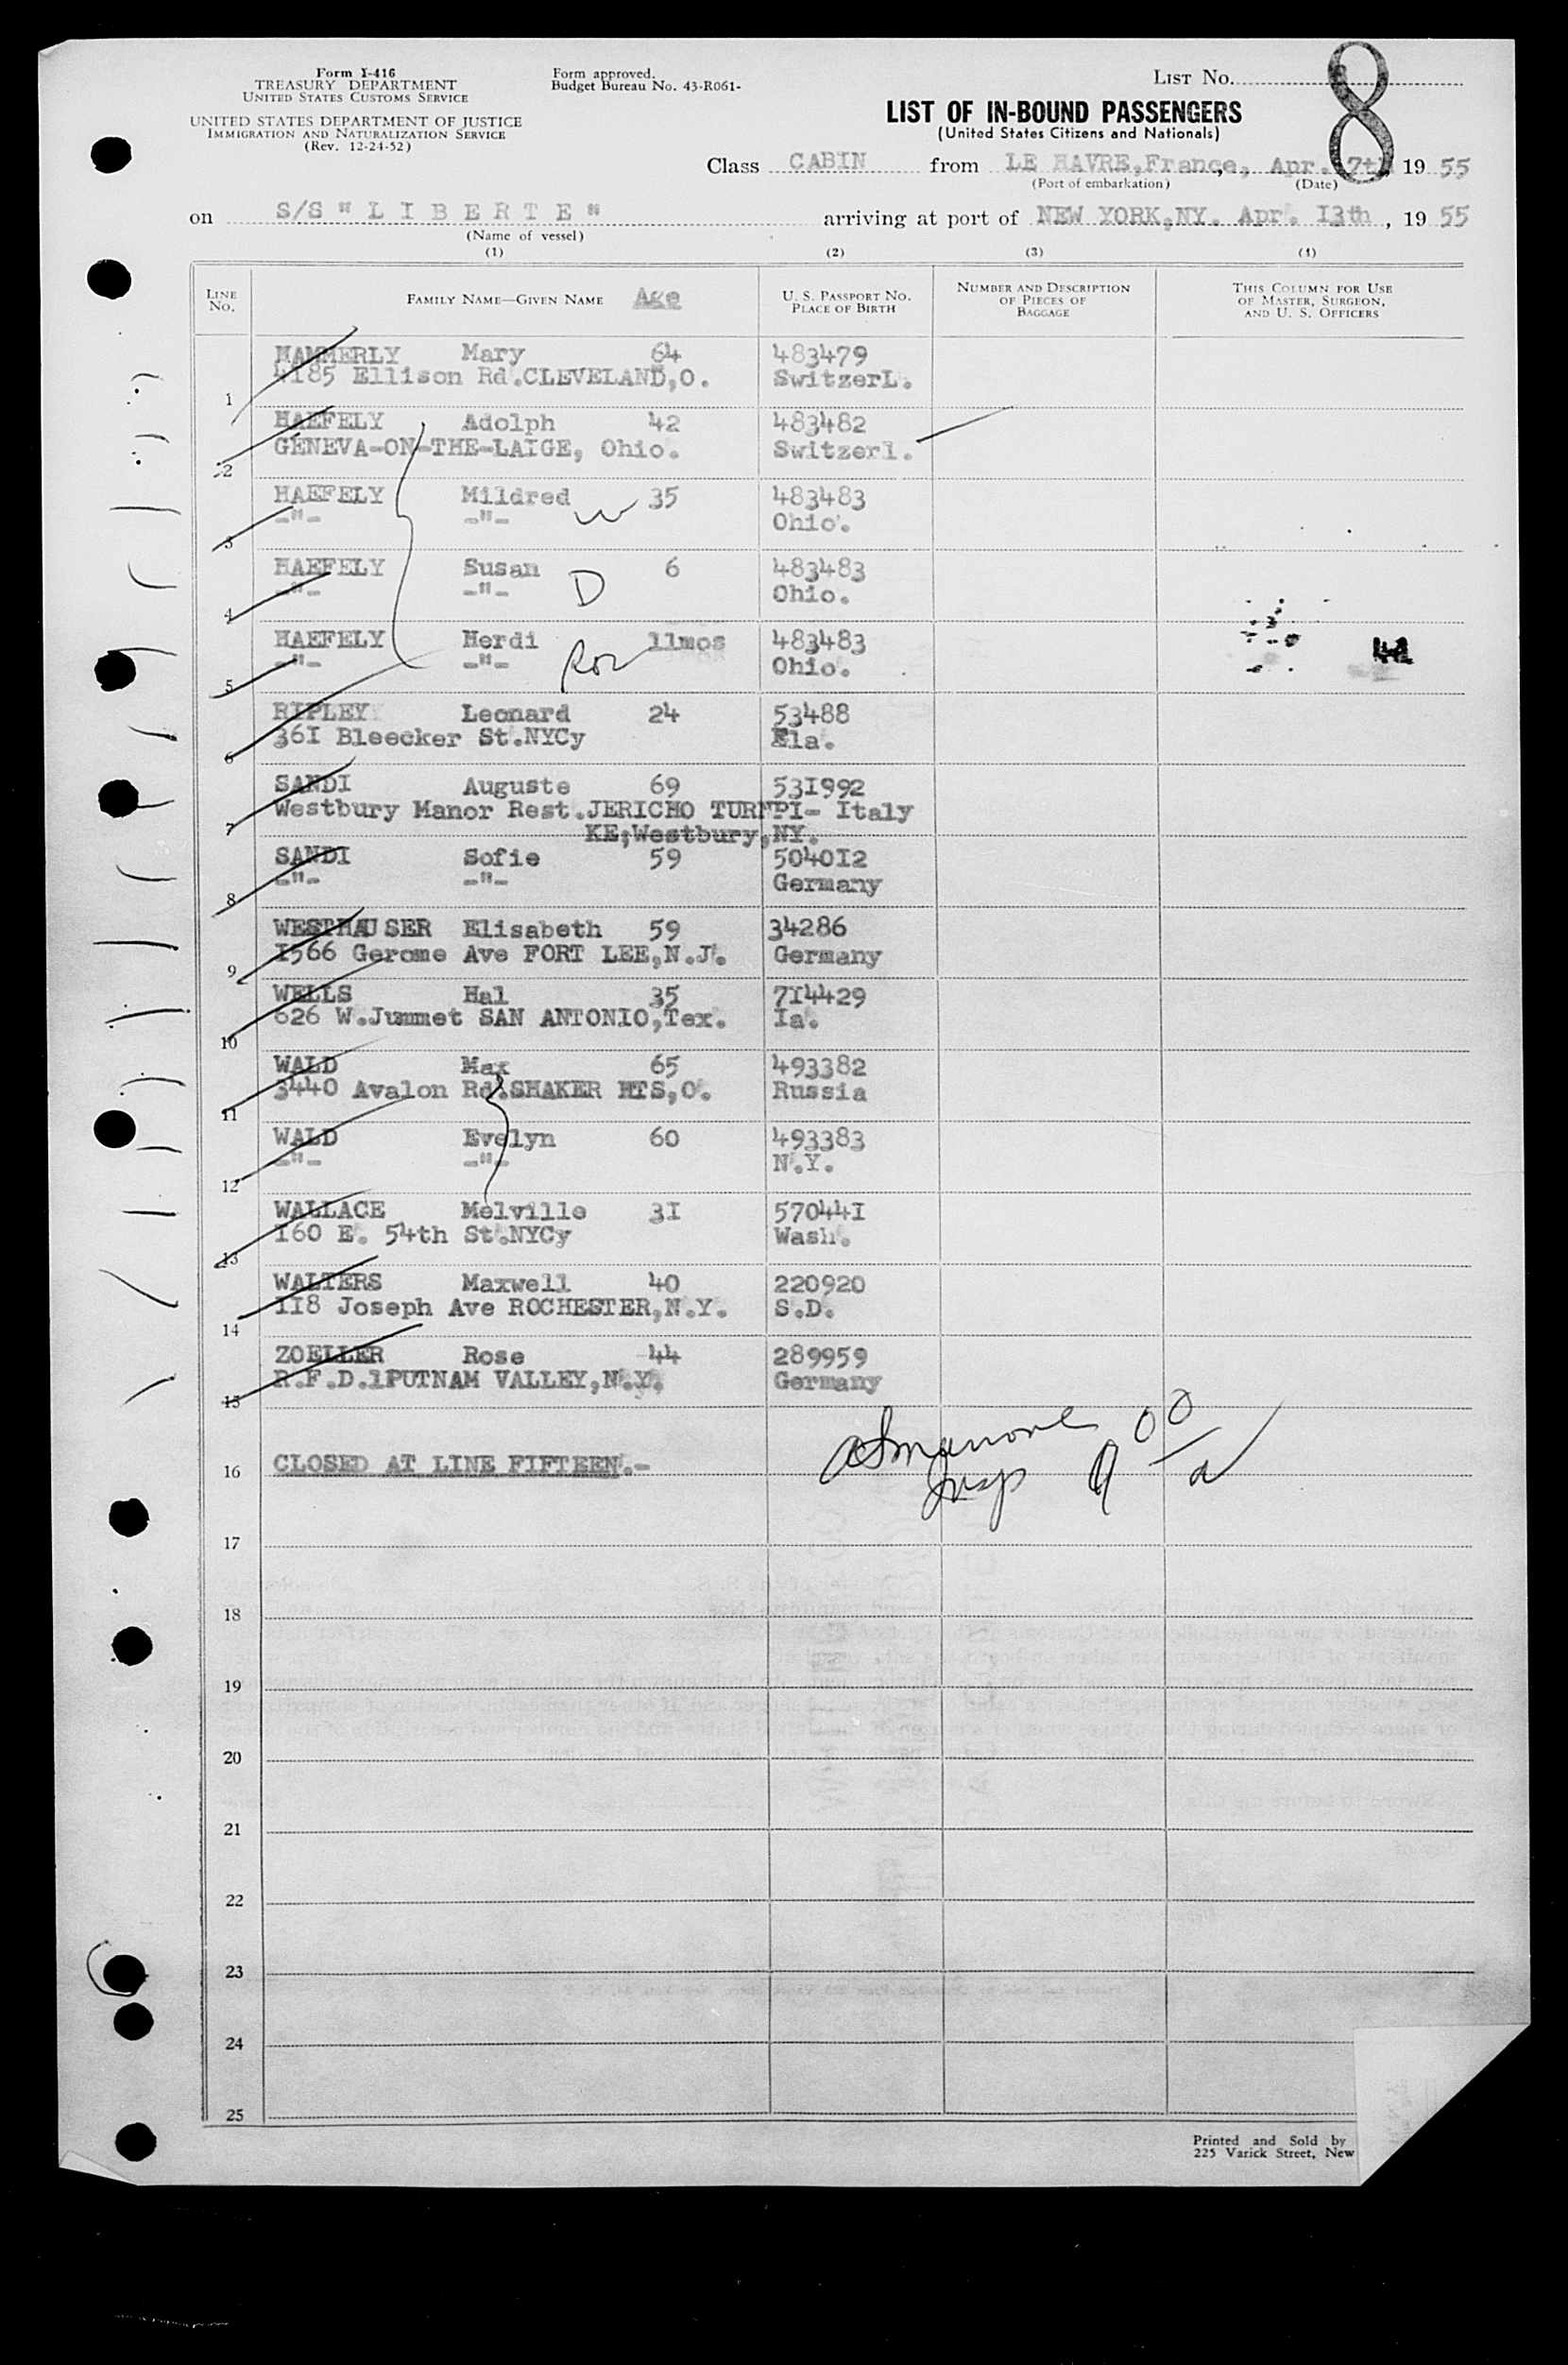 Form I-416
TREASURY DEPARTMENT
UNITED STATES CUSTOMS SERVICE
UNITED STATES DEPARTMENT OF JUSTICE
IMMIGRATION AND NATURALIZATION SERVICE
(Rev. 12-24-52)
Form approved.
Budget Bureau No. 43-R061-
LIST NO. 8
LIST OF IN-BOUND PASSENGERS
(United States Citizens and Nationals)
Class CABIN from LE HAVRE,France, Apr. 7th 19 55
(Port of embarkation) (Date)
on S/S "L I B E R T E" arriving at port of NEW YORK,NY. Apr. I3th, 19 55
(Name of vessel)
(1) (2) (3) (4)
LINE NO. FAMILY NAME—GIVEN NAME Age U. S. PASSPORT NO. PLACE OF BIRTH NUMBER AND DESCRIPTION OF PIECES OF BAGGAGE THIS COLUMN FOR USE OF MASTER, SURGEON, AND U. S. OFFICERS
HAMMERLY Mary 64 483479
4185 Ellison Rd.CLEVELAND,O. SwitzerL.
1
HAEFELY Adolph 42 483482
GENEVA-ON-THE-LAIGE, Ohio. Switzerl.
2
HAEFELY Mildred w 35 483483
-"- -"- Ohio.
3
HAEFELY Susan D 6 483483
-"- -"- Ohio.
4
HAEFELY Herdi 11mos 483483
-"- -"- Ohio.
5
RIPLEY Leonard 24 53488
36I Bleecker St.NYCy Ela.
6
SANDI Auguste 69 53I992
Westbury Manor Rest.JERICHO TURNPI- Italy
KE;Westbury,NY.
7
SANDI Sofie 59 504OI2
-"- -"- Germany
8
WESTHAUSER Elisabeth 59 34286
I566 Gerome Ave FORT LEE,N.J. Germany
9
WELLS Hal 35 7I4429
626 W.Jummet SAN ANTONIO,Tex. Ia.
10
WALD Max 65 493382
3440 Avalon Rd.SHAKER HTS,O. Russia
11
WALD Evelyn 60 493383
-"- -"- N.Y.
12
WALLACE Melville 3I 57044I
I60 E. 54th St.NYCy Wash.
13
WALTERS Maxwell 40 220920
II8 Joseph Ave ROCHESTER,N.Y. S.D.
14
ZOELLER Rose 44 289959
R.F.D.1PUTNAM VALLEY,N.Y. Germany
15
16 CLOSED AT LINE FIFTEEN.-
Insp
17
18
19
20
21
22
23
24
25
Printed and Sold by
225 Varick Street, New